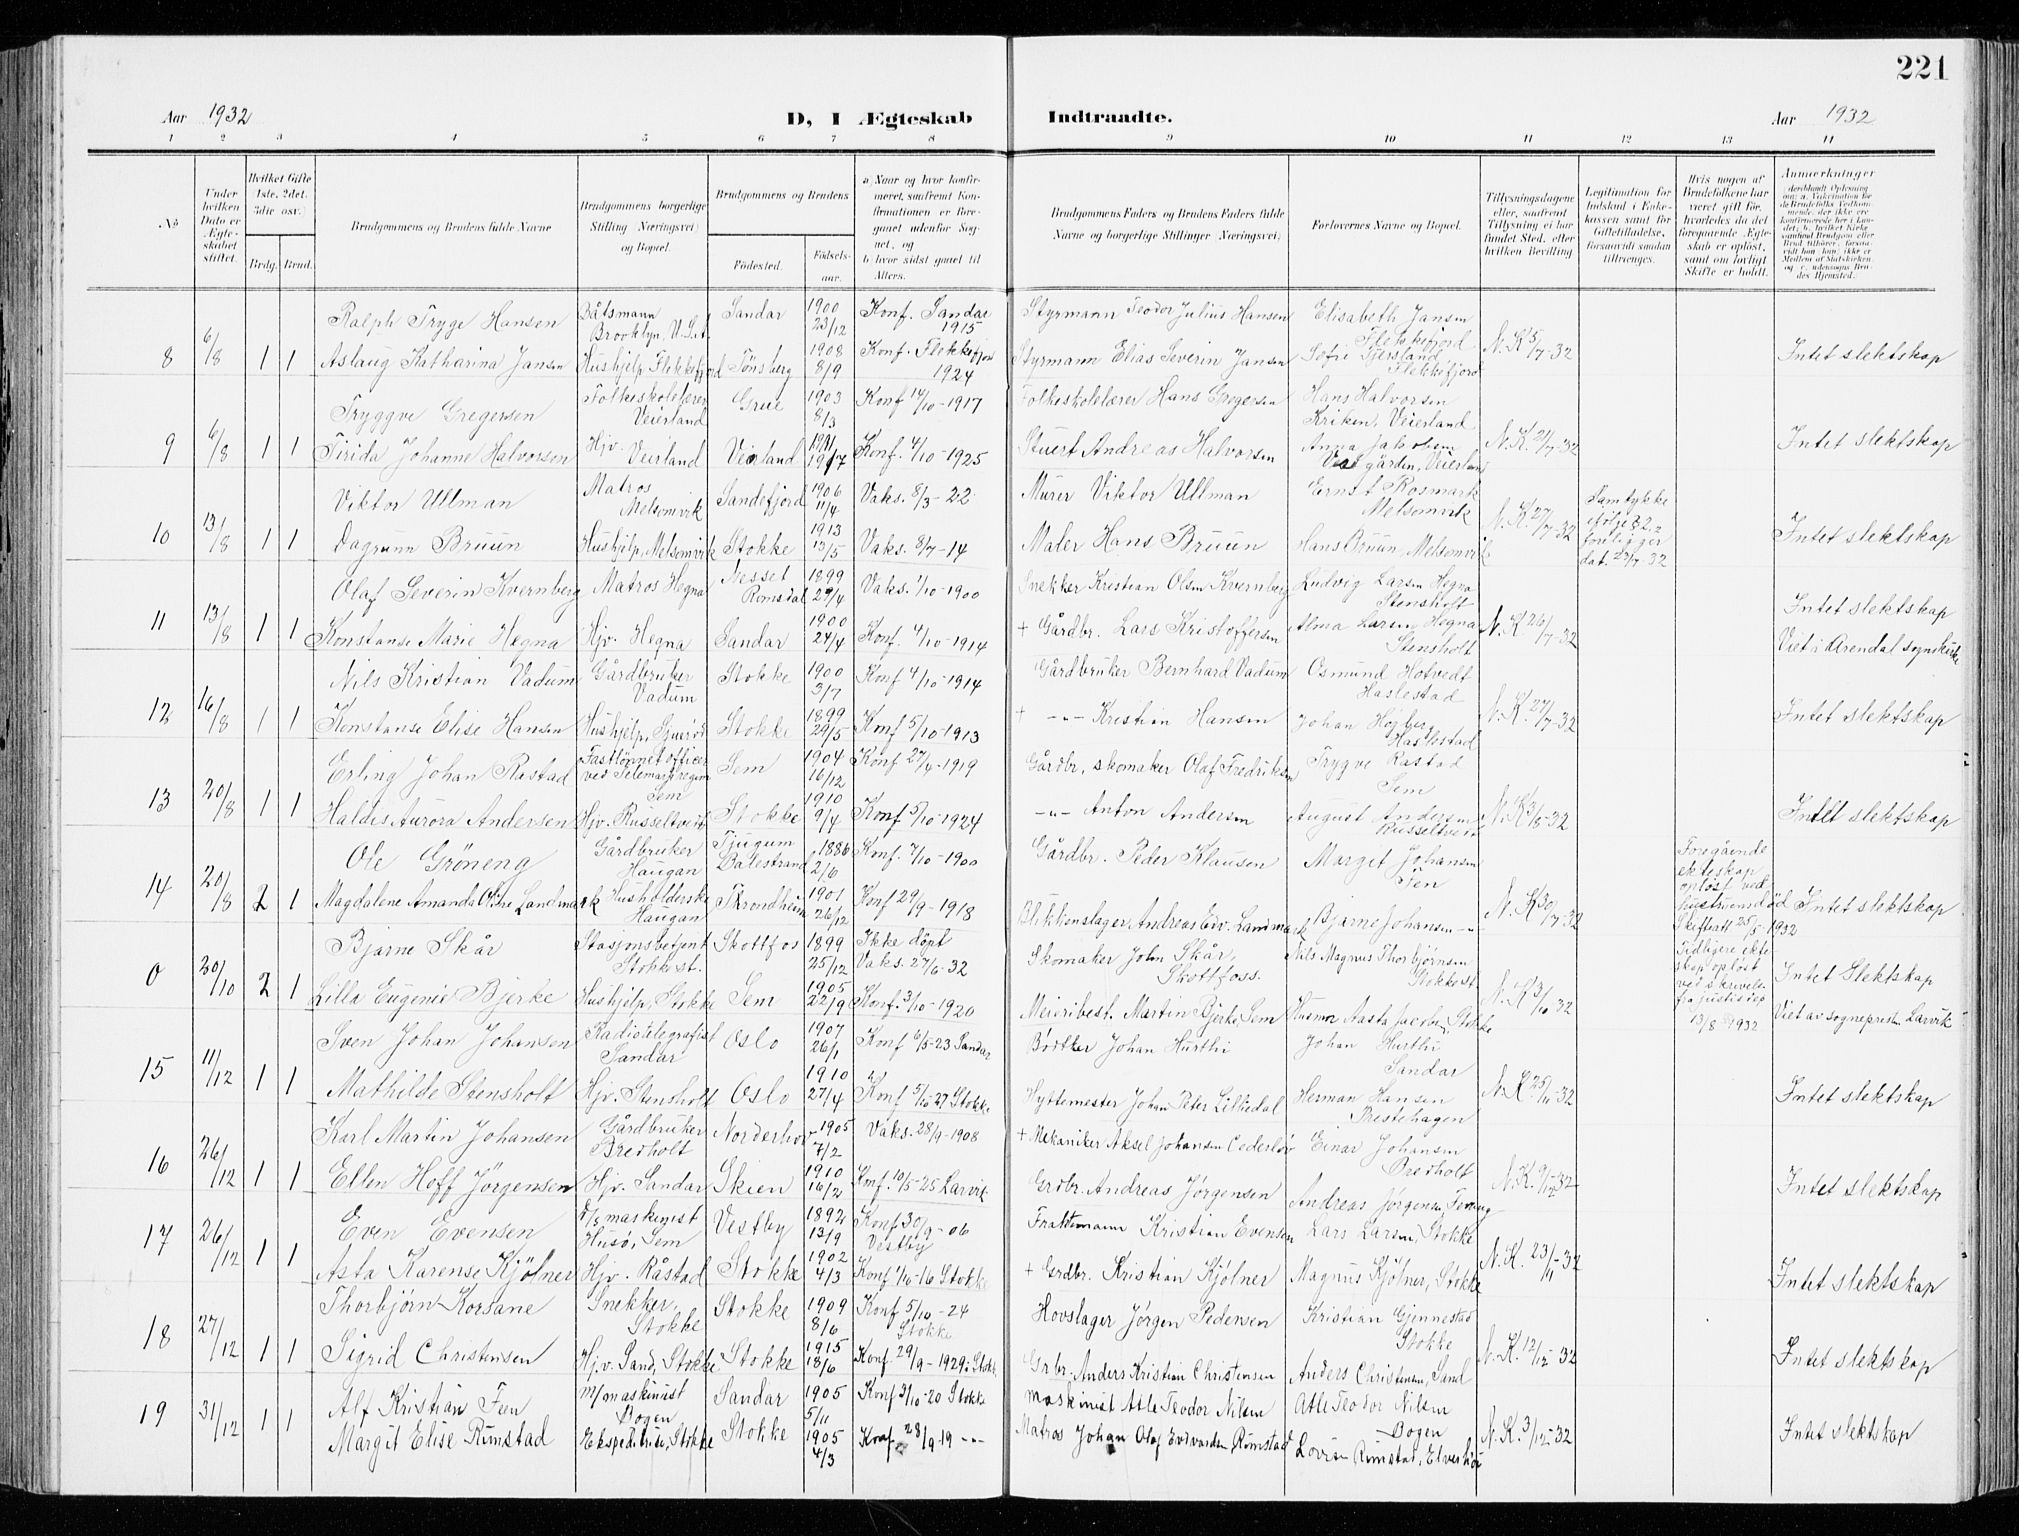 221
Aar 1932 D, I Ægteskab Indtraadte. Aar 1932
1 2 3 4 5 6 7 8 9 10 11 12 13 14
No
Under hvilken Dato er Ægteskabet stiftet.
Hvilket Gifte 1ste, 2det, 3die osv.
Brdg. Brud.
Brudgommens og Brudens fulde Navne
Brudgommens borgerlige Stilling (Næringsvei) og Bopæl.
Brudgommens og Brudens
Födested. Födselsaar.
a) Naar og hvor konfirmeret, saafremt Konfirmationen er foregaaet udenfor Sognet, og
b) hvor sidst gaaet til Alters.
Brudgommens Faders og Brudens Faders fulde Navne og borgerlige Stillinger (Næringsvei)
Forlovernes Navne og Bopæl.
Tillysningsdagene eller, saafremt Tillysning ei har fundet Sted, efter hvilken Bevilling
Legitimation for Indskud i Enkekassen samt for Giftetilladelse, forsaavidt saadan tiltrænges.
Hvis nogen af Brudefolkene har været gift før, hvorledes da det foregaaende Ægteskab er opløst, samt om lovligt Skifte er holdt.
Anmerkninger
Ralph Tryge Hansen Båtsmann Brooklyn, U.S.A. Sandar 1900 23/12 Konf. Sandar 1915 Styrmann Teodor Julius Hansen Elisabeth Jansen Flekkefjord
8 6/8 1 1 Aslaug Katharina Jansen Hushjelp Flekkefjord Tønsberg 1908 8/9 Konf. Flekkefjord 1924 Styrmann Elias Severin Jansen Gjersland Flekkefjord N.K. 5/7-32 Intet slektskap
Tryggve Gregersen Folkeskolelærer Veierland Grue 1903 8/3 Konf 14/10-1917 Folkeskolelærer Hans Gregersen Hans Halvorsen Kriken, Veierland
9 6/8 1 1 Tirida Johanne Halvorsen Hjv. Veierland Veierland Konf. 4/10-1925 Stuert Andreas Halvorsen Anna Jakobsen Vestgården, Veierland N.K. 21/7-32 Intet slektskap
Viktor Ullman Matros Melsomvik Sandefjord 1906 11/4 Vaks. 8/3-22 Murer Viktor Ullman Ernst Rosmark Melsomvik
10 13/8 1 1 Dagrunn Bruun Hushjelp, Melsomvik Stokke 1913 13/5 Vaks. 8/7-14 Maler Hans Bruun Hans Bruun, Melsomvik N.K. 27/7-32 Samtykke ifölge § 2,2 foreligger dat. 23/7-32 Intet slektskap
Olaf Severin Kvernberg Matros Hegna Nesset Romsdal 1899 29/4 Vaks. 1/10-1900 Snekker Kristian Olsen Kvernberg Ludvig Larsen Hegna Stensholt
11 13/8 1 1 Konstanse Marie Hegna Hjv. Hegna Sandar 1900 24/4 Konf. 4/10-1914 + Gårdbr. Lars Kristoffersen Alma Larsen, Hegna Stensholt N.K. 26/7-32 Intet slektskap Viet i Arendal sognekirke
Nils Kristian Vadum Gårdbruker Vadum Stokke 1900 3/7 Konf 4/10-1914 Gårdbruker Bernhard Vadum Osmund Hotvedt Haslestad
12 16/8 1 1 Konstanse Elise Hansen Hushjelp, Stokke 1899 29/5 Konf 5/10-1913 + -"- Kristian Hansen Johan Högberg Haslestad N.K. 27/7-32 Intet slektskap
Erling Johan Rastad Fastlönnet officer ved Telemark regim Sem Sem 1904 16/12 Konf 27/4-1919 Gårdbr, skomaker Olaf Fredriksen Trygve Rastad Sem
13 20/8 1 1 Haldis Aurora Andersen Hjv. Russeltvedt Stokke 1910 9/4 Konf 5/10-1924 -"- Anton Andersen August Andersen Russeltvedt N.K. 3/8-32 Intet slektskap
Ole Gröneng Gårdbruker Haugan Tjugum Balestrand 1886 2/6 Konf. 7/10-1900 Gårdbr. Peder Klausen Marget Johansen Fen
14 20/8 2 1 Magdalene Amanda Oline Landmark Husholderske Haugan Trondheim 1901 26/12 Konf 29/9-1918 Blikkenslager Andreas Edv. Landmark Bjarne Johansen -"- N.K. 30/7-32 Foregående ekteskap oplöst ved hustruens död Skifteatt 25/5-1932 Intet slektskap
Bjarne Skår Stasjonsbetjent Stokke st. Skotfos 1899 25/12 Ikke döpt Vaks. 27/6-32 Skomaker John Skår, Skotfoss. Nils Magnus Thorbjørnsen Stokke st
0 20/10 2 1 Lilla Eugenie Bjerke Hushjelp, Stokke Sem 1905 22/9 Konf. 3/10-1920 Meieribest. Martin Bjerke, Sem Husmor Aasta Jacobsen, Stokke N.K. 3/10 32 Tidligere ekteskap oplöst ved skrivelse fra justisdep 13/8 1932 Intet Slektskap Viet av sogneprest Larvik
Sven Johan Johansen Radiotelegrafist Sandar Oslo 1907 26/1 Konf 6/5-23 Sandar Bødtker Johan Hurthi Johan Hurthi Sandar
15 11/12 1 1 Mathilde Stensholt Hjv. Stensholt Oslo 1910 27/4 Konf 5/10-27 Stokke Hyttemester Johan Peter Lilledal Herman Hansen Prestehagen N.K. 25/11-32 Intet slektskap
Karl Martin Johansen Gårdbruker Bredholt Norderhov 1905 7/2 Vaks. 28/9-1908 + Mekaniker Aksel Johansen Cederløv Einar Johansen Bredholt
16 26/12 1 1 Ellen Hoff Jörgensen Hjv. Sandar Skien 1910 16/2 Konf. 10/5-25 Larvik Grdbr. Andreas Jørgensen Andreas Jørgensen, N.K. 9/12-32 Intet slektskap
Even Evensen D/s maskinist Husö, Sem Vestby 1892 13/9 Konf 30/9-06 Vestby Fraktemann Kristian Evensen Lars Larsen, Stokke
17 26/12 1 1 Asta Karense Kjölner Hjv. Råstad Stokke 1902 4/3 Konf 1/10-16 Stokke + Grdbr. Kristian Kjölner Magnus Kjölner, Stokke N.K. 23/11-32 Intet slektskap
Thorbjörn Korsane Snekker, Stokke Stokke 1909 8/6 Konf 5/10-24 Stokke Hovslager Jørgen Pedersen Kristian Gjennestad Stokke
18 27/12 1 1 Sigrid Christensen Hjv. Sand, Stokke Stokke 1915 18/6 Konf 29/9-1929 i Stokke Grbr. Anders Kristian Christensen Anders Christensen, Sand N.K. 12/12-32 Intet slektskap
Alf Kristian Fen m/maskinist Bogen Sandar 1905 5/11 Konf 3/10-20 Stokke maskinist Atle Teodor Nilsen Atle Teodor Nilsen Bogen
19 31/12 1 1 Margit Elise Rimstad Ekspeditrise, Stokke Stokke 1905 4/3 Konf 28/9-19 -"- Matros Johan Olaf Edvardsen Rimstad Lovise Rimstad, Elverhöi N.K. 3/12-32 Intet slektskap